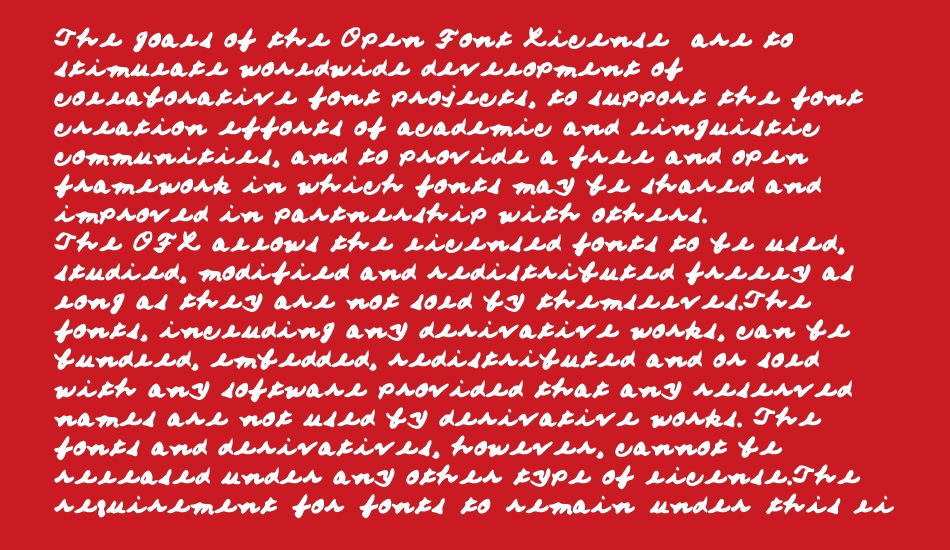 The goals of the Open Font License are to
stimulate worldwide development of
collaborative font projects, to support the font
creation efforts of academic and linguistic
communities, and to provide a free and open
framework in which fonts may be shared and
improved in partnership with others.
The OFL allows the licensed fonts to be used,
studied, modified and redistributed freely as
long as they are not sold by themselves.The
fonts, including any derivative works, can be
bundled, embedded, redistributed and or sold
with any software provided that any reserved
names are not used by derivative works. The
fonts and derivatives, however, cannot be
released under any other type of license.The
requirement for fonts to remain under this li